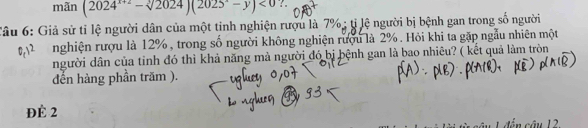 mãn (2024ˣ⁺² − ∛2024)(2025ˣ − y) < 0 ?.
Câu 6: Giả sử tỉ lệ người dân của một tỉnh nghiện rượu là 7% ; tỉ lệ người bị bệnh gan trong số người
nghiện rượu là 12% , trong số người không nghiện rượu là 2% . Hỏi khi ta gặp ngẫu nhiên một
người dân của tỉnh đó thì khả năng mà người đó bị bệnh gan là bao nhiêu? ( kết quả làm tròn
đến hàng phần trăm ).
0,12
0,07
0,12
nghiện 0,07
ko nghiện 93
p(A) = p(B) . p(A|B) + p(B̅) p(A|B̅)
ĐỀ 2